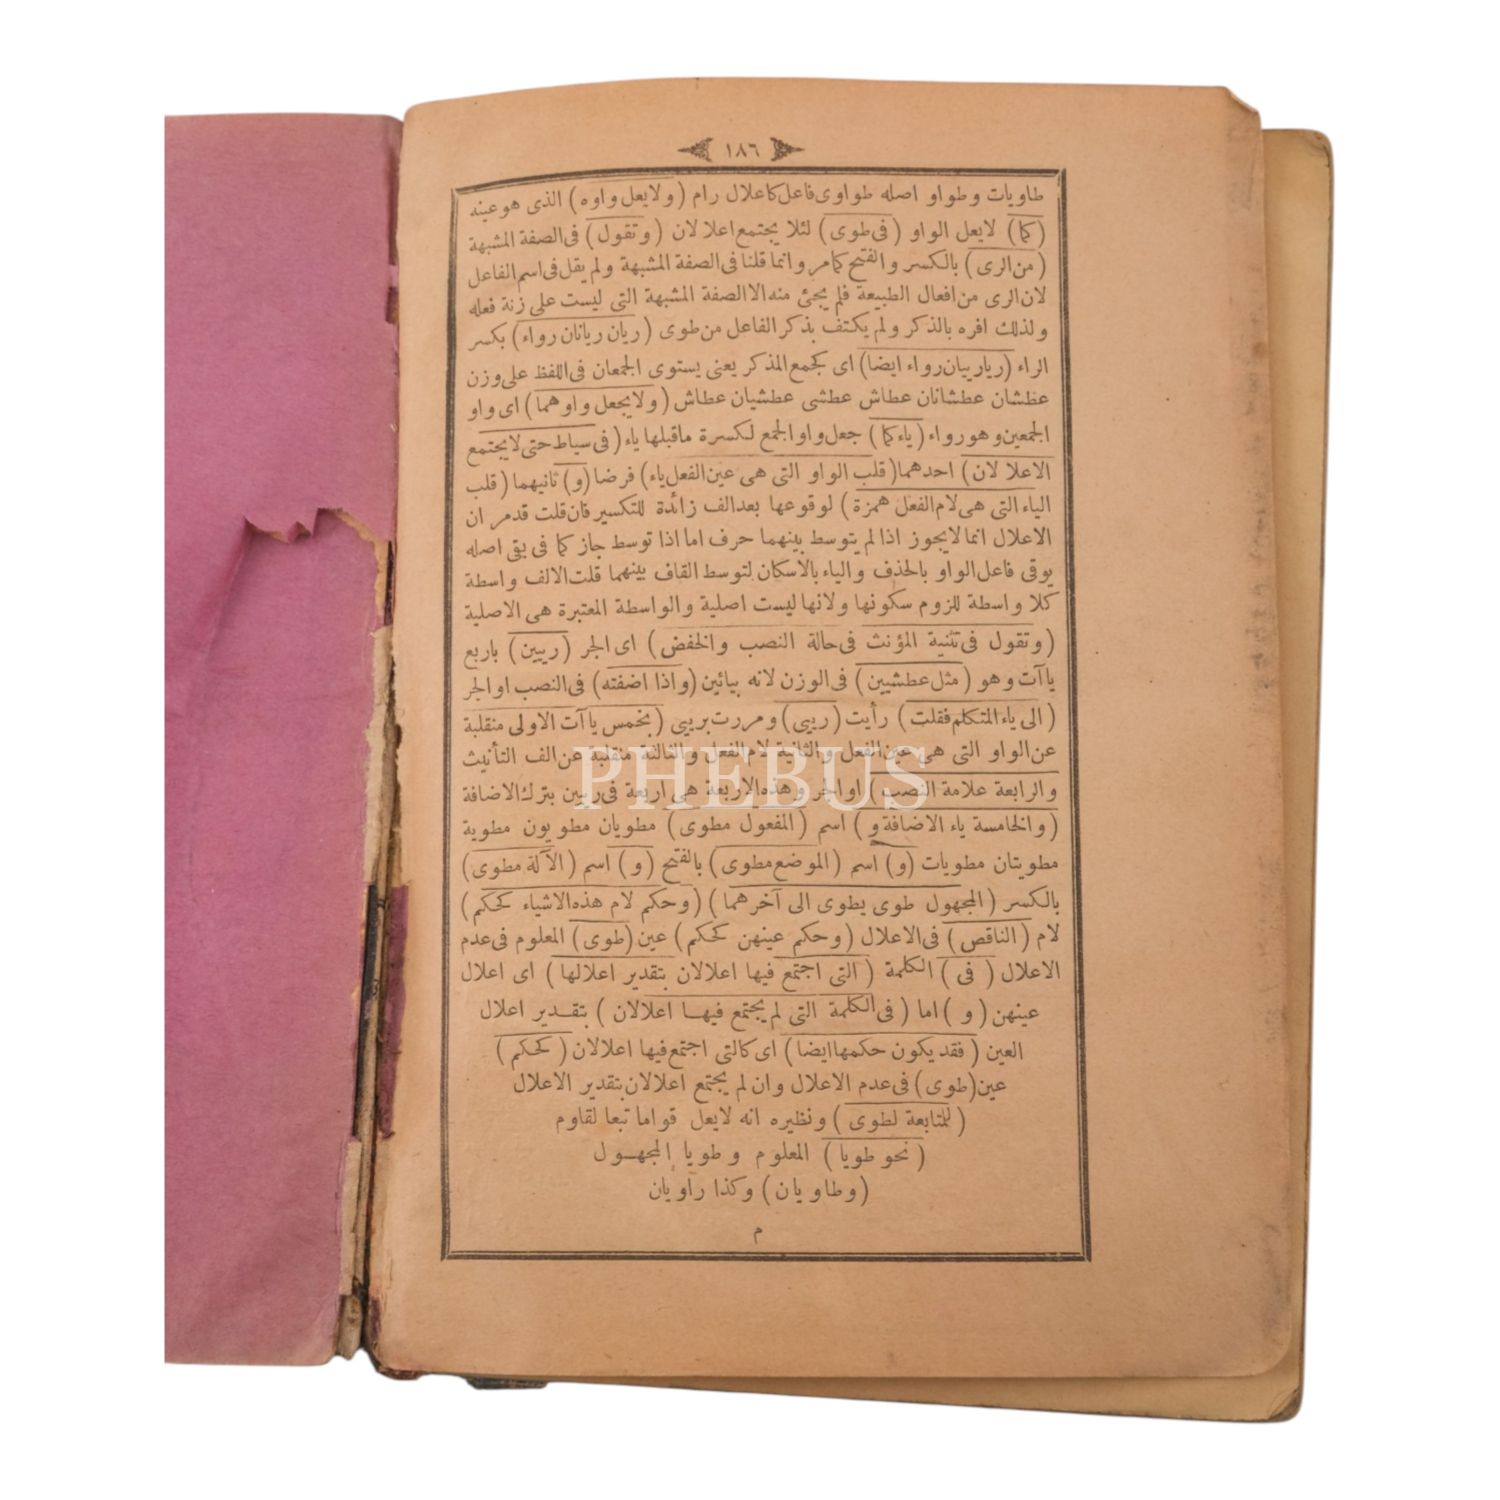 ١٨٦
طاويات وطواو اصله طواوى فاعل كاعلال رام (ولايعل واوه) الذى هو عينه
(كما) لايعل الواو (فى طوى) لئلا يجتمع اعلالان (وتقول) فى الصفة المشبهة
(من الرى) بالكسر والفتح كمامر وانما قلنا فى الصفة المشبهة ولم يقل فى اسم الفاعل
لان الرى من افعال الطبيعة فلم يجئ منه الا الصفة المشبهة التى ليست على زنة فعله
ولذلك افره بالذكر ولم يكتف بذكر الفاعل من طوى (ريان ريانان رواء) بكسر
الراء (رياريبان رواء ايضا) اى كجمع المذكر يعنى يستوى الجمعان فى اللفظ على وزن
عطشان عطشانان عطاش عطشى عطشيان عطاش (ولايجعل واوهما) اى واو
الجمعين وهو رواء (ياء كما) جعل واو الجمع لكسرة ماقبلها ياء (فى سياط حتى لايجتمع
الاعلالان) احدهما (قلب الواو التى هى عين الفعل ياء) فرضا (و) ثانيهما (قلب
الياء التى هى لام الفعل همزة) لوقوعها بعد الف زائدة للتكسير فان قلت قدمر ان
الاعلال انما لايجوز اذا لم يتوسط بينهما حرف اما اذا توسط جاز كما فى يقى اصله
يوقى فاعل الواو بالحذف والياء بالاسكان لتوسط القاف بينهما قلت الالف واسطة
كلا واسطة للزوم سكونها ولانها ليست اصلية والواسطة المعتبرة هى الاصلية
(وتقول فى تثنية المؤنث فى حالة النصب والخفض) اى الجر (ريين) باربع
ياآت وهو (مثل عطشيين) فى الوزن لانه بيائين (واذا اضفته) فى النصب او الجر
(الى ياء المتكلم فقلت) رأيت (ريي) ومررت بريي (بخمس ياآت الاولى منقلبة
عن الواو التى هى عين الفعل والثانية لام الفعل والثالثة منقلبة عن الف التأنيث
والرابعة علامة النصب) او الجر وهذه الاربعة هى اربعة فى ريين بترك الاضافة
(والخامسة ياء الاضافة و) اسم (المفعول مطوى) مطويان مطويون مطوية
مطويتان مطويات (و) اسم (الموضع مطوى) بالفتح (و) اسم (الآلة مطوى)
بالكسر (المجهول طوى يطوى الى آخرهما) (وحكم لام هذه الاشياء كحكم)
لام (الناقص) فى الاعلال (وحكم عينهن كحكم) عين (طوى) المعلوم فى عدم
الاعلال (فى) الكلمة (التى اجتمع فيها اعلالان بتقدير اعلالها) اى اعلال
عينهن (و) اما (فى الكلمة التى لم يجتمع فيها اعلالان) بتقدير اعلال
العين (فقد يكون حكمها ايضا) اى كالتى اجتمع فيها اعلالان (كحكم)
عين (طوى) فى عدم الاعلال وان لم يجتمع اعلالان بتقدير الاعلال
(للمتابعة لطوى) ونظيره انه لايعل قواما تبعا لقاوم
(نحو طويا) المعلوم وطويا المجهول
(وطاويان) وكذا راويان
م
PHEBUS